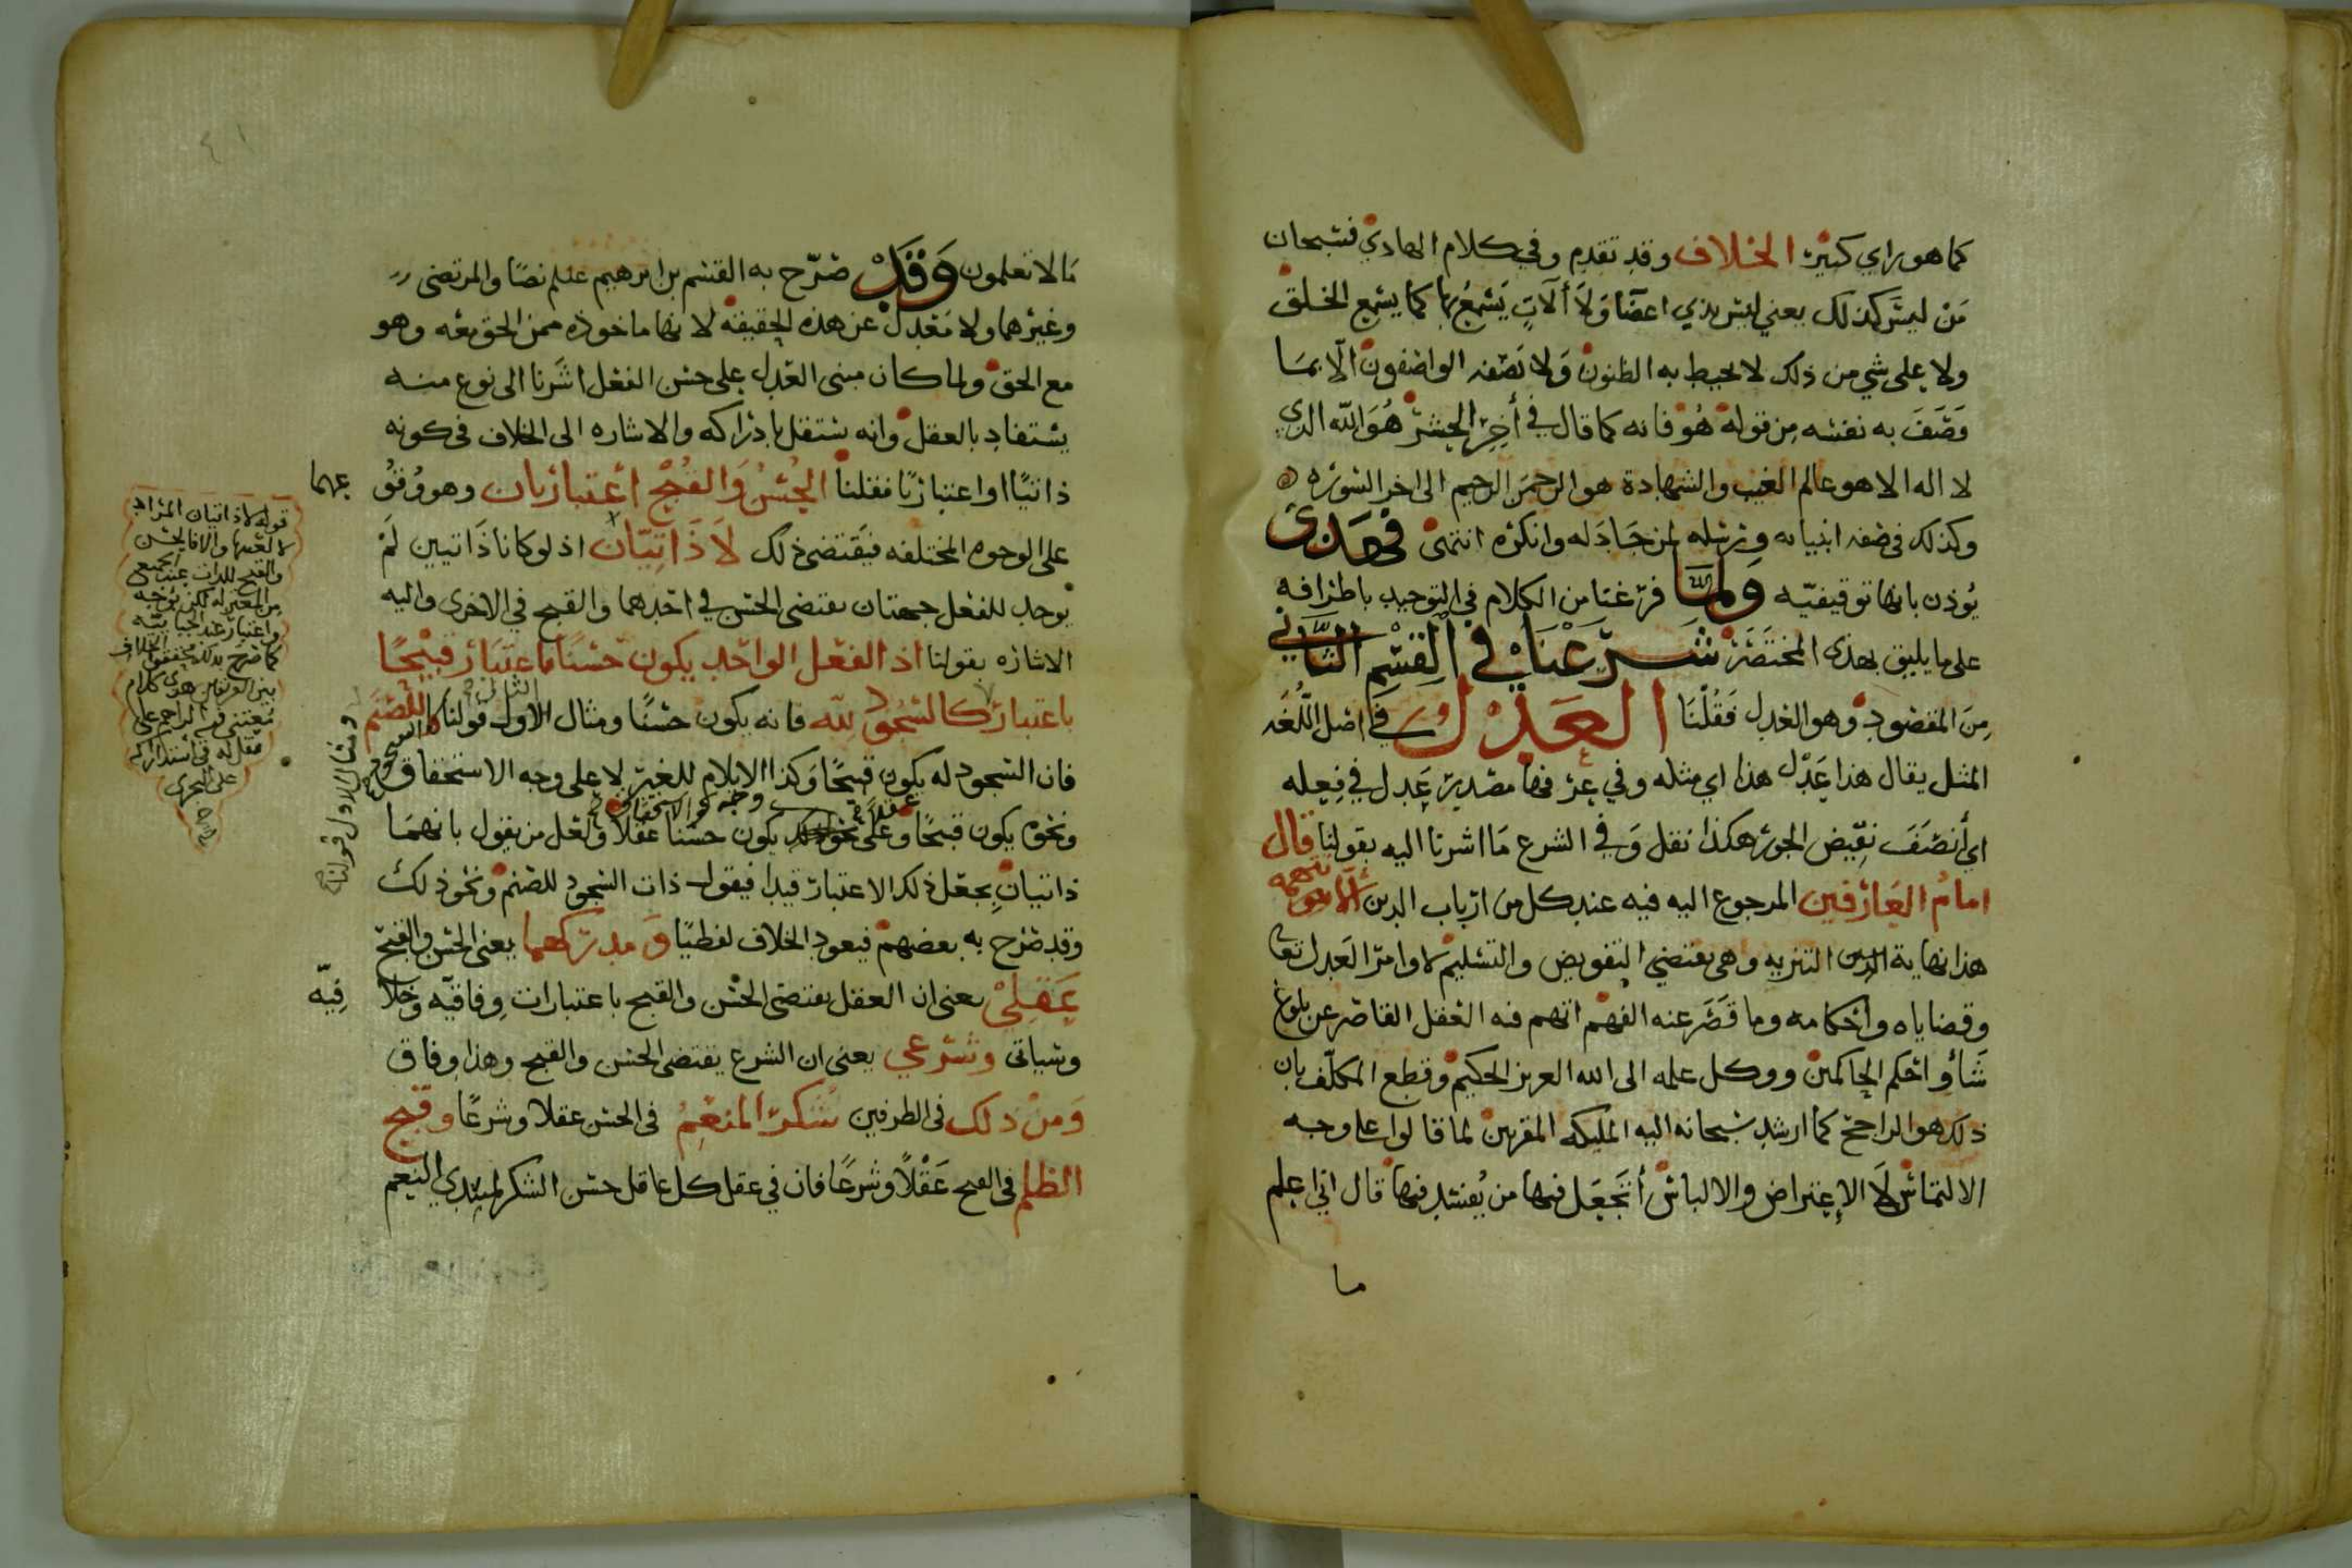 كما هو راي كثير الخلاف وقد تقدم وفي كلام الهادي فسبحان
مَنْ ليسَ كذلك يعني ليس بذي اعضا وَلَا ألَاتٍ يَسْمعُ بها كما يسمع الخلق
ولا على شي من ذلك لا تحيط به الظنون وَلا تصفه الواصفون الّا بمَا
وَصَفَ به نفسه مِن قوله هُو فانه كما قال في أخِرِ الحشر هُوَ الله الذي
لا اله الا هو عالم الغيب والشهادة هو الرحمن الرحيم الى اخر السوره
وكذلك في صفه انبيائه ورسله لمن جَادَله وانكره انتهى فهذى
يُوذن بانها توقيفيّه ولمّا فرغنا من الكلام في التوحيد باطرافه
على ما يليق بهذى المختصَر شَرَعْنَا في القِسْمِ الثّاني
مِنَ المقصود وهو العدل فَقُلْنَا العَدْل في اصل اللُّغَه
المثل يقال هذا عَدْل هذا اي مثله وفي عرفها مصدر عَدل في فِعله
اي أنصَفَ نقيض الجور هكذا نقل وَفي الشرع مَا اشرنا اليه بقولنا قال
امامُ العَارفين المرجوع اليه فيه عند كل من ارباب الدين الَّا تتهمه
هذا نهاية التنزيه وهي تقتضي التفويض والتسليم لاوامر العَدل تعا
وقضاياه واحكامه وما قَصَرَ عنه الفهم اتهم فيه العقل القاصر عن بلوغ
شَأو احكم الحاكمين ووكل علمه الى الله العزيز الحكيم وقطع المكلّف بان
ذلك هو الراجح كما ارشد سبحانه اليه المليكه المقربين لما قالوا على وجه
الالتماس لَا الإعتراض والالباس أتَجْعَل فيها من يُفسد فيها قال اني اعلم
ما
مَا لا تعلمون وَقَدْ صَرّح به القسم بن ابرهيم علم نصّا والمرتضى
وغيرهما ولا مَعْدل عن هذه الحقيقه لانها ماخوذه ممن الحق معه وهو
مع الحق ولما كان مبنى العدل على حسن الفعل اشَرنا الى نوع منه
يستفاد بالعقل وانه يستقل بادراكه والاشاره الى الخلاف في كونه
ذاتيًا او اعتباريًا فقلنا الحُسْنُ وَالقُبْح اعتباريان وهو وُقُوعهما
على الوجوه المختلفه فيقتضى ذلك لَا ذَاتِيّان اذ لو كانا ذَاتيين لَمْ
يوجد للفعل جهتان يقتضى الحسن في احدهما والقبح في الاخرى واليه
الاشاره بقولنا اذ الفعل الواحد يكون حَسَنًا باعتبَار قَبِيْحًا
باعتبار كالسُجُود للّه فانه يكون حسنًا ومثال الثاني قولنا كالسجود للصّنَم
فان السجود له يكون قبيحًا وَكذا الايلام للغير لا على وجه الاستحقاق
ونحوه يكون قبيحًا عقلاً وعلى وجه الاستحقاق يكون حسنا عقلا ولعل من يقول بانهمَا
ذاتيانِ يجعل ذلك الاعتبار قيدا فيقول ذات السجود للصنم ونحو ذلك
وقد صَرّح به بعضهم فيعود الخلاف لفظيًا وَمدركهما يعني الحسن والقبح
عَقلِيْ يعنى ان العقل يقتضى الحسْن والقبح باعتبارات وِفاقيّه وخلافِيّه
وسياتى وشرعي يعنى ان الشرع يقتضى الحسن والقبح وهذا وفاق
وَمن ذلك في الطرفين شُكرُ المنعِمُ في الحسن عقلا وشرعًا وقبح
الظلم في القبح عَقْلًا وشرعًا فان في عقل كل عاقل حسن الشكر لمبتدي النِعم
ومثال الاول قولنا
قوله لا ذاتيان المراد
والقبح للذات عند الجميع
من المعتزله لكن بوجه
واعتبار عند الجبائيّه
كما صرح بذلك محققوا